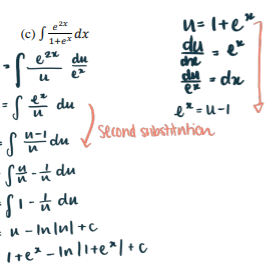 (c) ∫ e^{2x}/(1+e^x) dx
= ∫ e^{2x}/u du/e^x
= ∫ e^x/u du
= ∫ (u-1)/u du
= ∫ u/u - 1/u du
= ∫ 1 - 1/u du
= u - ln|u| + c
1+e^x - ln|1+e^x| + c
u = 1+e^x
du/dx = e^x
du/e^x = dx
e^x = u-1
second substitution